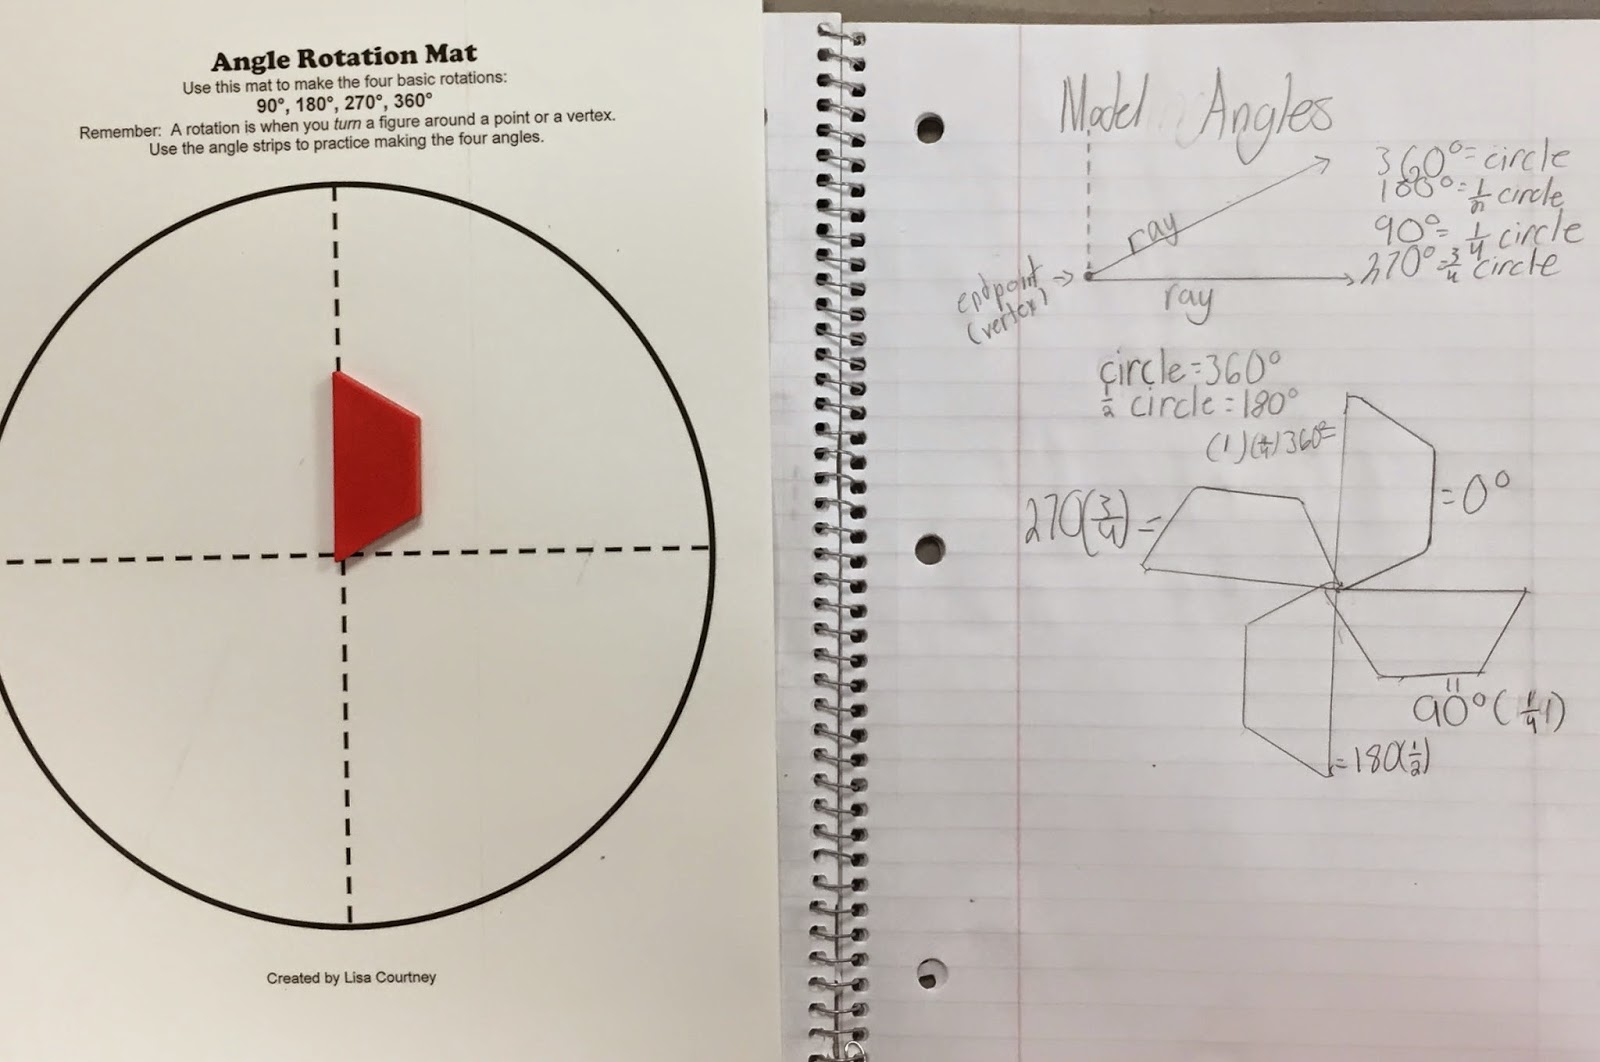 Angle Rotation Mat
Use this mat to make the four basic rotations:
90°, 180°, 270°, 360°
Remember: A rotation is when you turn a figure around a point or a vertex.
Use the angle strips to practice making the four angles.
Created by Lisa Courtney
Model Angles
360°= circle
180°= 1/2 circle
90°= 1/4 circle
270°= 3/4 circle
ray
endpoint →
(vertex)
ray
circle = 360°
1/2 circle = 180°
(1) 360°=
= 0°
270(3/4) =
=
90° (1/4)
= 180(1/2)